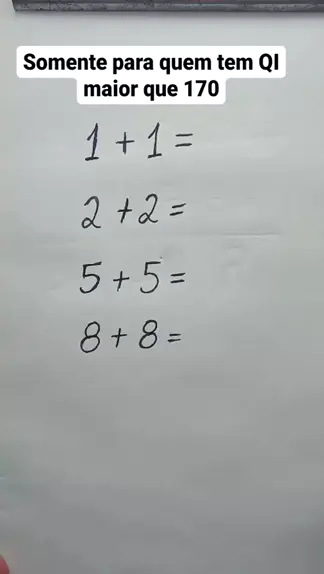 Somente para quem tem QI
maior que 170
1 + 1 =
2 + 2 =
5 + 5 =
8 + 8 =